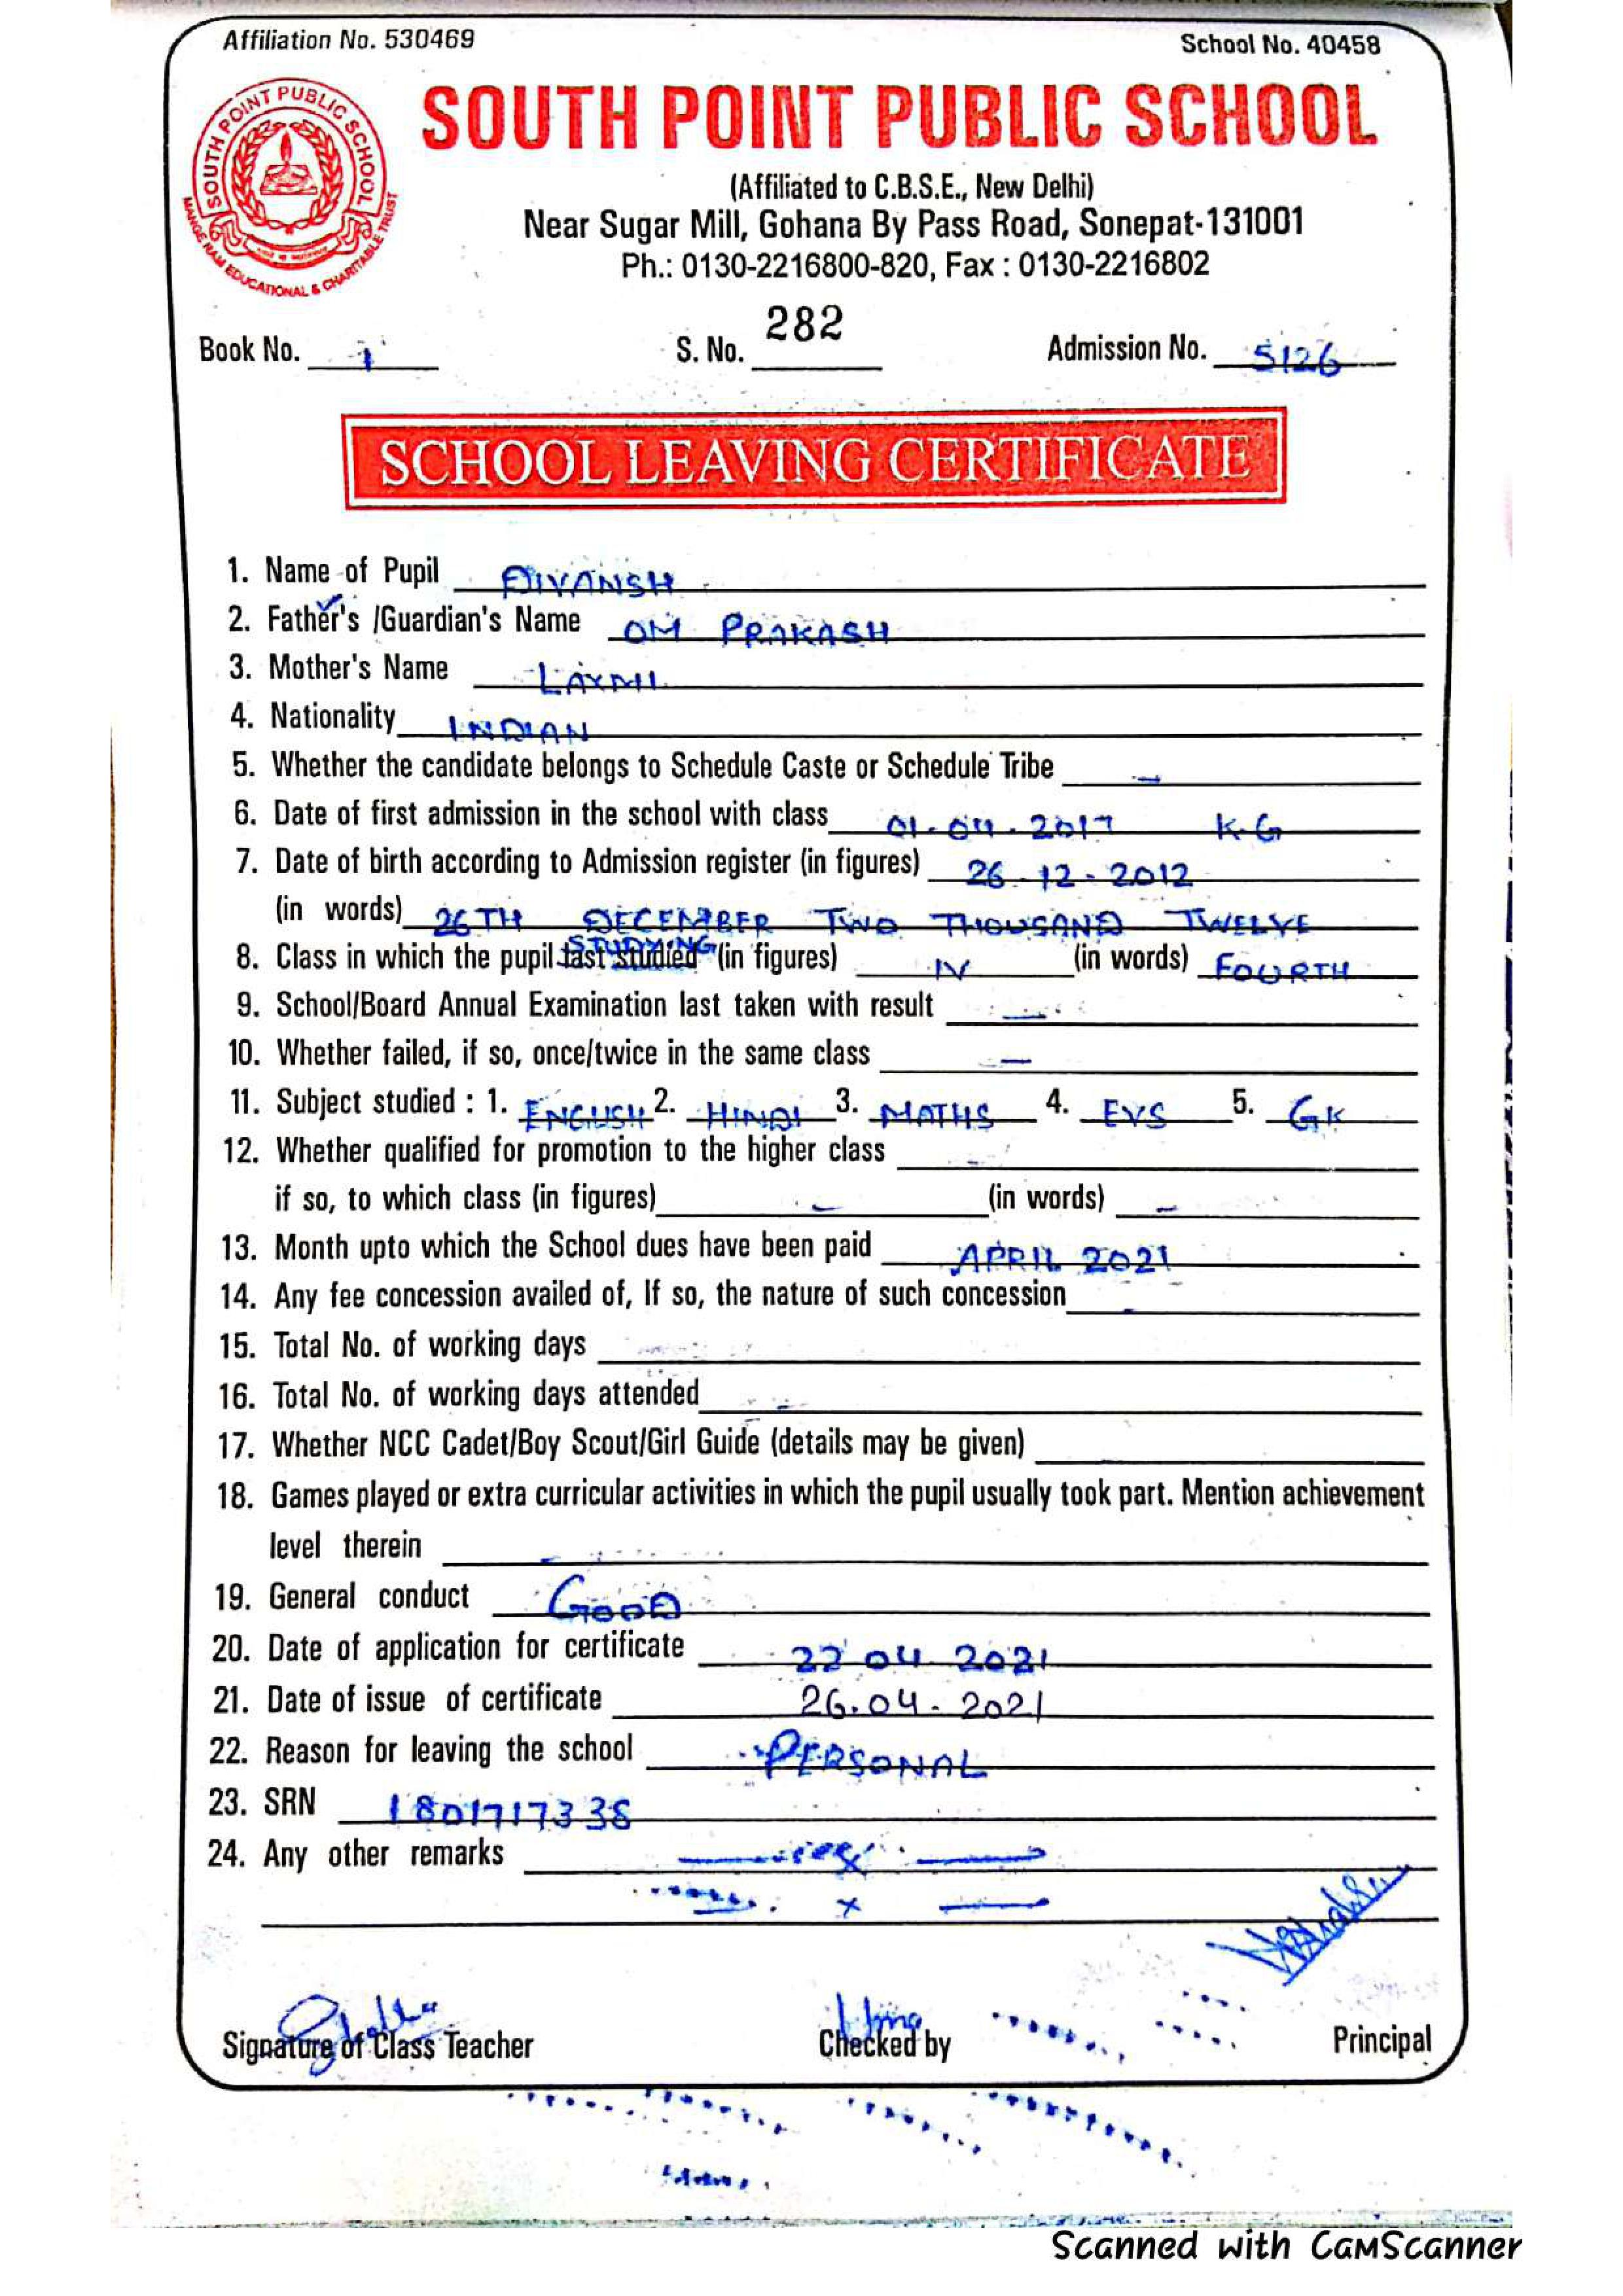 Affiliation No. 530469 School No. 40458
SOUTH POINT PUBLIC SCHOOL
MANGE RAM EDUCATIONAL & CHARITABLE TRUST
SOUTH POINT PUBLIC SCHOOL
(Affiliated to C.B.S.E., New Delhi)
Near Sugar Mill, Gohana By Pass Road, Sonepat-131001
Ph.: 0130-2216800-820, Fax : 0130-2216802
Book No. 1 S. No. 282 Admission No. 5126
SCHOOL LEAVING CERTIFICATE
1. Name of Pupil DIVANSH
2. Father's /Guardian's Name OM PRAKASH
3. Mother's Name LAXMI
4. Nationality INDIAN
5. Whether the candidate belongs to Schedule Caste or Schedule Tribe –
6. Date of first admission in the school with class 01-04-2017 K.G
7. Date of birth according to Admission register (in figures) 26-12-2012
(in words) 26TH DECEMBER TWO THOUSAND TWELVE
8. Class in which the pupil last studied STUDYING (in figures) IV (in words) FOURTH
9. School/Board Annual Examination last taken with result –
10. Whether failed, if so, once/twice in the same class –
11. Subject studied : 1. ENGLISH 2. HINDI 3. MATHS 4. EVS 5. GK
12. Whether qualified for promotion to the higher class –
if so, to which class (in figures) – (in words) –
13. Month upto which the School dues have been paid APRIL 2021
14. Any fee concession availed of, If so, the nature of such concession –
15. Total No. of working days –
16. Total No. of working days attended –
17. Whether NCC Cadet/Boy Scout/Girl Guide (details may be given)
18. Games played or extra curricular activities in which the pupil usually took part. Mention achievement
level therein –
19. General conduct GOOD
20. Date of application for certificate 22 04 2021
21. Date of issue of certificate 26.04.2021
22. Reason for leaving the school PERSONAL
23. SRN 1801717338
24. Any other remarks — x —
— x —
Signature of Class Teacher Checked by Principal
Scanned with CamScanner